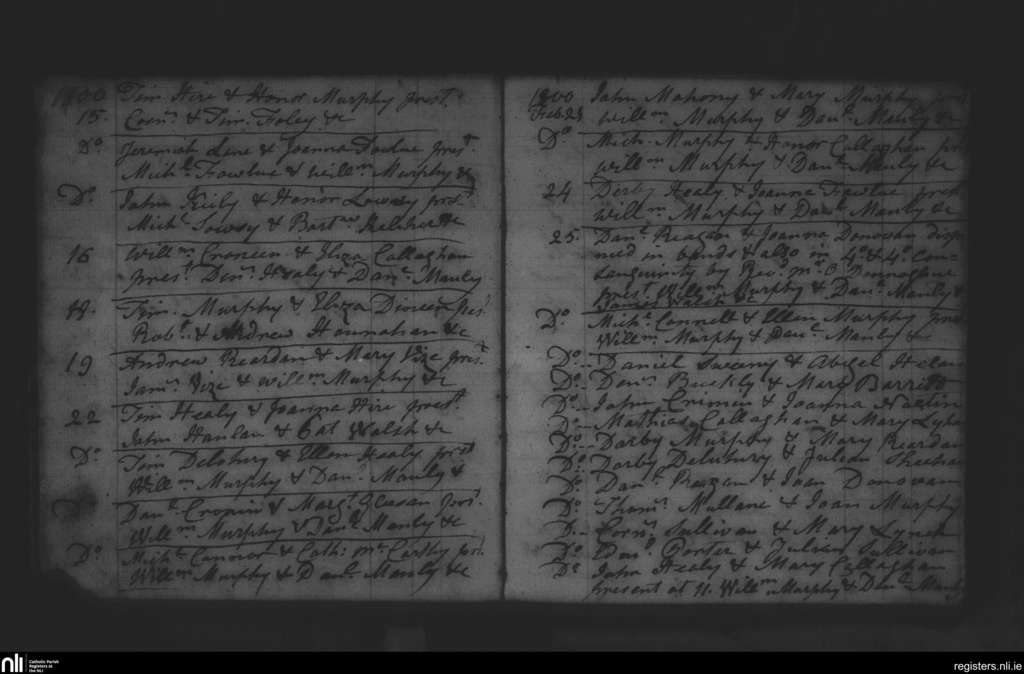 1800 Tim Hire & Honor Murphy prest.
15. Corns. & Tim. Foley &c
Do. Jeremiah Lane & Joanna Fowlue prest
Michl. Fowlue & Willm Murphy &c
Do. John Kiely & Honor Lowsy prest.
Michl. Lowsy & Bartw Kelcher &c
16 Willm Croneen & Eliza Callaghan
prest. Denis Healy & Danl. Manly
18. Tim. Murphy & Eliza Dineen prest.
Robt. & Andrew Hannahan &c
19 Andrew Reardan & Mary Vize prest
James Vize & Willm Murphy &c
22 Tim Healy & Joanna Hire prest.
John Hanlan & Cat Walsh &c
Do. Tim Delebury & Ellen Healy prest
Willm Murphy & Danl. Manly &
Danl. Cronin & Margt. Gleasan prst.
Willm Murphy & Danl. Manly &c
Do Michl. Connor & Cath: McCarthy prst.
Willm Murphy & Danl. Manly &c
1800 John Mahony & Mary Murphy
Feb. 23 Willm Murphy & Danl. Manly &c
Do Mich. Murphy & Honor Callaghan
Willm Murphy & Danl. Manly &c
24 Derby Healy & Joanna Fowlue prest
Willm Murphy & Danl. Manly &c
25. Danl. Reagan & Joanna Donovan disp
nsed in bands & also in 4o. & 4o. con-
sanguinity by Rev. Mr. O Donnoghue
prest Willm Murphy & Danl. Manly &
Do. Michl. Connell & Ellen Murphy prest
Willm Murphy & Danl. Manly &c
Do - Daniel Sweeny & Abigel
Do - Denis Buckly & Mary Barrett
Do - John Cremen & Joanna
Do - Mathias Callaghan & Mary
Do - Darby Murphy & Mary Reardan
Do Darby Delebury & Julean Sheehan
Do Danl. Reagan & Joan Donovan
Do Thomas Mullane & Joan Murphy
D. - Corns Sullivan & Mary Lynch
Do - Edmd. Porter & Julean Sullivan
Do John Healy & Mary Callaghan
present at 11. Willm Murphy & Danl Manly
nli
Catholic Parish
Registers at
the NLI
registers.nli.ie